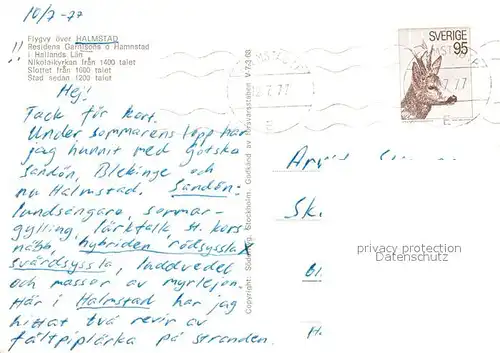 10/7-77
Flygvy över HALMSTAD
Residens Garnisons o Hamnstad
i Hallands Län
Nikolaikyrkan från 1400 talet
Slottet från 1600 talet
Stad sedan 1200 talet
!!
SVERIGE
95
12.7.77
Hej!
Tack för kort.
Under sommarens lopp har
jag hunnit med Gotska
Sandön, Blekinge och
nu Halmstad. Sandön:
lundsångare, sommar-
gylling, lärkfalk, st. kors
näbb, hybriden rödsyssla X
svärdsyssla, luddvedel
och massor av myrlejon.
Här i Halmstad har jag
hittat två revir av
fältpiplärka på stranden.
Stockholm. Godkänd av försvarsstaben V-7-3 68
Copyright:
Sk.
privacy protection
Datenschutz